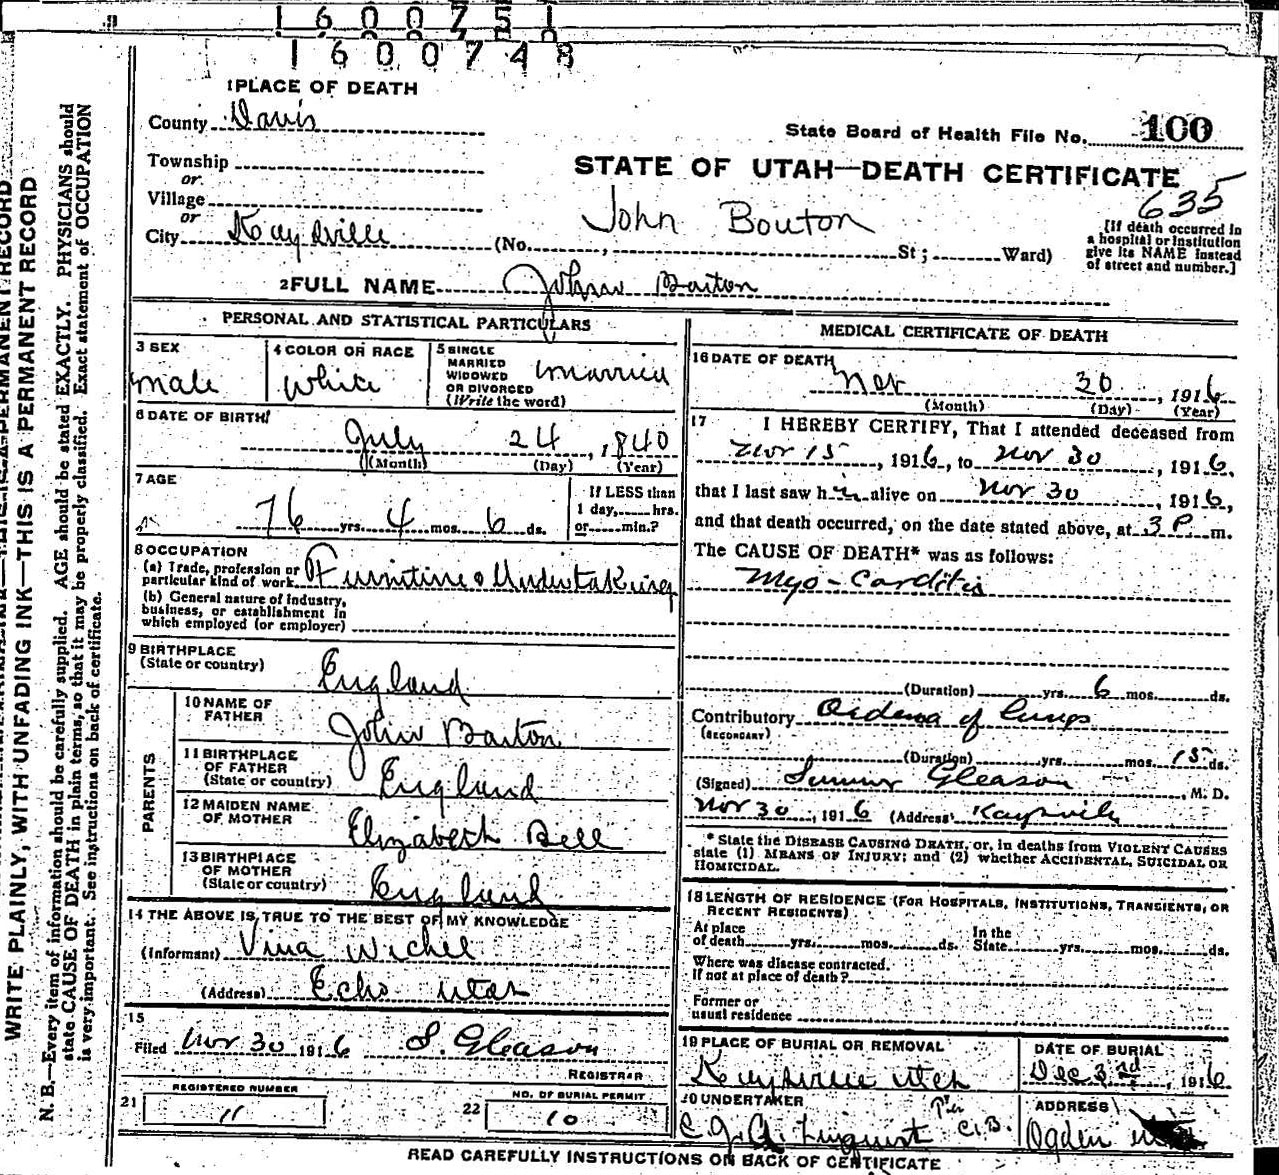 1600751
1600748
1 PLACE OF DEATH
County Davis
State Board of Health File No. 100
Township
or
STATE OF UTAH—DEATH CERTIFICATE
Village
or
635
John Bouton
City Kaysville (No. , St; Ward)
[If death occurred in
a hospital or institution
give its NAME instead
of street and number.]
2 FULL NAME John Barton
PERSONAL AND STATISTICAL PARTICULARS
3 SEX
male
4 COLOR OR RACE
White
5 SINGLE
MARRIED
WIDOWED
OR DIVORCED
(Write the word)
married
6 DATE OF BIRTH
July 24, 1840
(Month) (Day) (Year)
7 AGE
76 yrs. 4 mos. 6 ds.
If LESS than
1 day, hrs.
or min.?
8 OCCUPATION
(a) Trade, profession or
particular kind of work Furniture & Undertaking
(b) General nature of industry,
business, or establishment in
which employed (or employer)
9 BIRTHPLACE
(State or country)
England
PARENTS
10 NAME OF
FATHER
John Barton
11 BIRTHPLACE
OF FATHER
(State or country)
England
12 MAIDEN NAME
OF MOTHER
Elizabeth Bell
13 BIRTHPLACE
OF MOTHER
(State or country)
England
14 THE ABOVE IS TRUE TO THE BEST OF MY KNOWLEDGE
(Informant) Vina
(Address) Echo Utah
15
Filed Nov 30 1916 S. Gleason
REGISTRAR
REGISTERED NUMBER
21 11
NO. OF BURIAL PERMIT
22 10
MEDICAL CERTIFICATE OF DEATH
16 DATE OF DEATH
Nov 30, 1916
(Month) (Day) (Year)
17 I HEREBY CERTIFY, That I attended deceased from
Nov 15, 1916, to Nov 30, 1916,
that I last saw him alive on Nov 30, 1916,
and that death occurred, on the date stated above, at 3 P m.
The CAUSE OF DEATH* was as follows:
Myo-Carditis
(Duration) yrs. 6 mos. ds.
Contributory Oedema of lungs
(SECONDARY)
(Duration) yrs. mos. 15 ds.
(Signed) Sumner Gleason, M. D.
Nov 30, 1916 (Address) Kaysville
* State the DISEASE CAUSING DEATH, or, in deaths from VIOLENT CAUSES
state (1) MEANS OF INJURY; and (2) whether ACCIDENTAL, SUICIDAL OR
HOMICIDAL.
18 LENGTH OF RESIDENCE (FOR HOSPITALS, INSTITUTIONS, TRANSIENTS, OR
RECENT RESIDENTS)
At place
of death yrs. mos. ds.
In the
State yrs. mos. ds.
Where was disease contracted.
If not at place of death?
Former or
usual residence
19 PLACE OF BURIAL OR REMOVAL
Kaysville Utah
DATE OF BURIAL
Dec 3rd, 1916
20 UNDERTAKER
Per
C.B.
ADDRESS
Ogden
READ CAREFULLY INSTRUCTIONS ON BACK OF CERTIFICATE
WRITE PLAINLY, WITH UNFADING INK—THIS IS A PERMANENT RECORD
N. B.—Every item of information should be carefully supplied. AGE should be stated EXACTLY. PHYSICIANS should
state CAUSE OF DEATH in plain terms, so that it may be properly classified. Exact statement of OCCUPATION
is very important. See instructions on back of certificate.